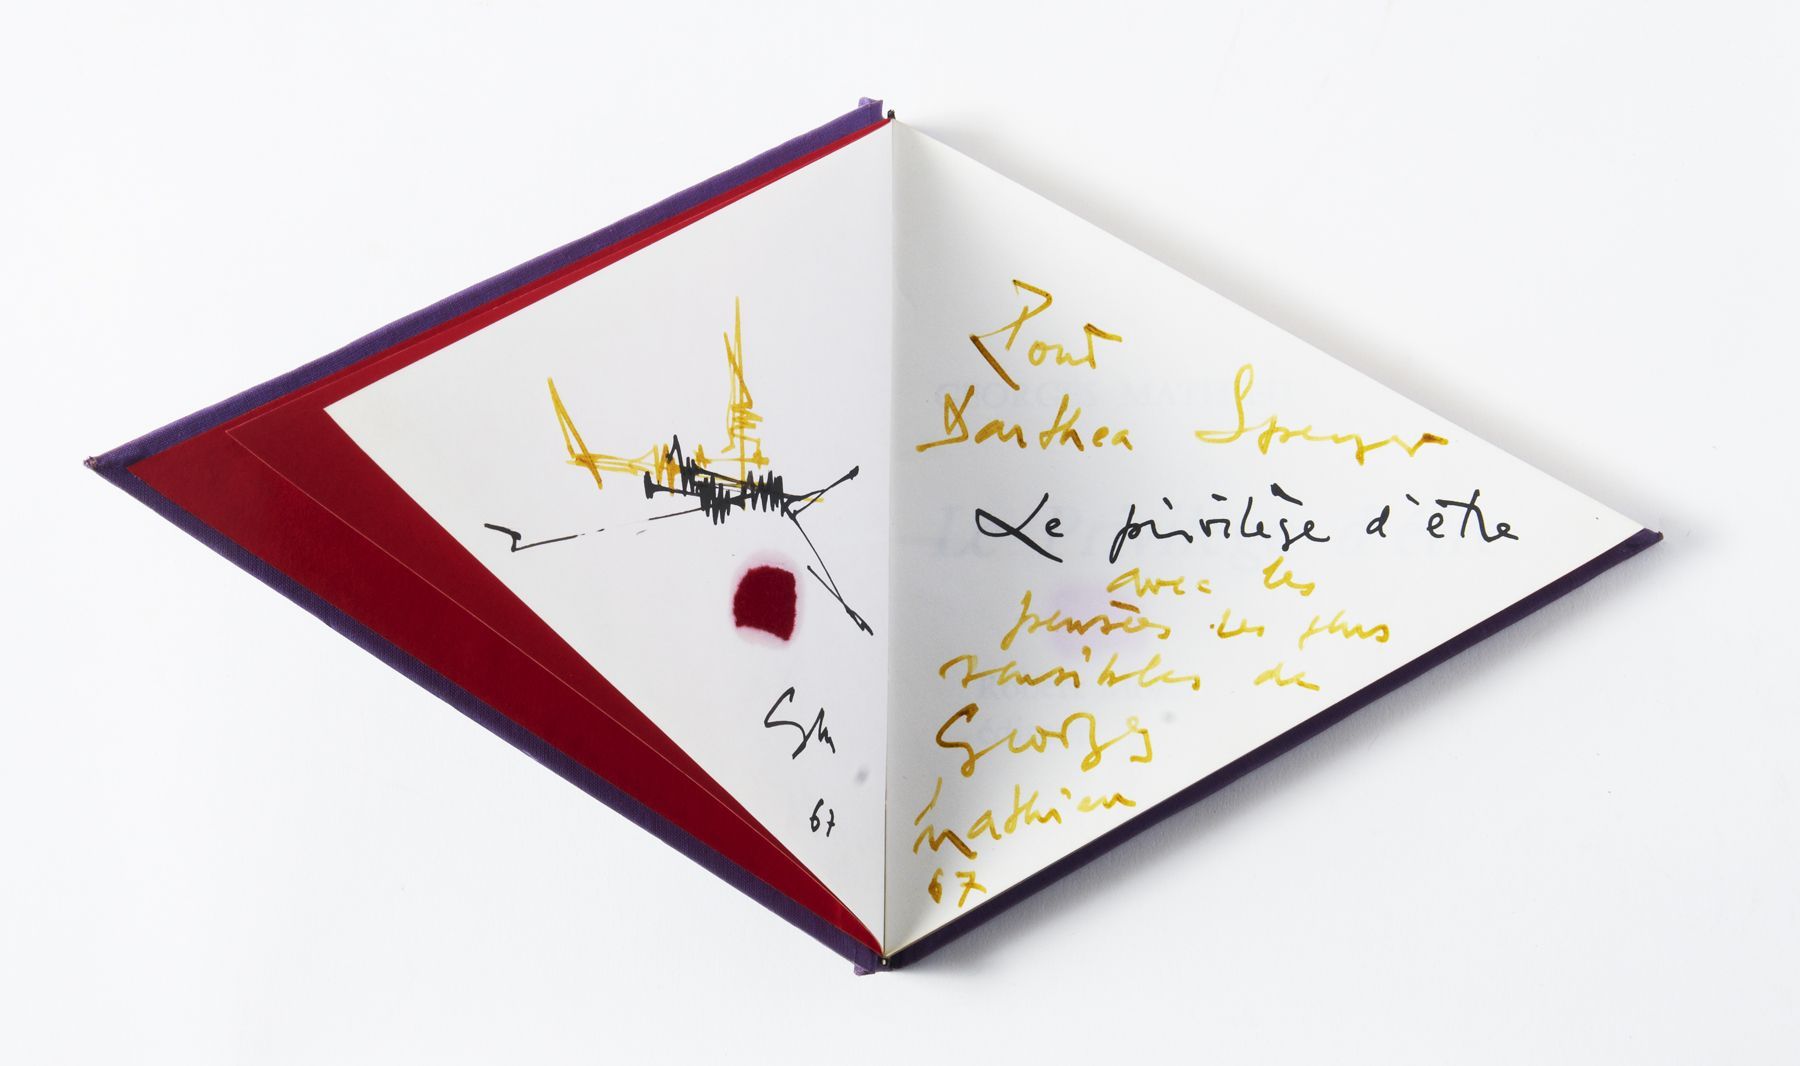 GM
67
Pour
Dorthea Speyer
Le privilège d'être
avec les
pensées les plus
sensibles de
Georges
Mathieu
67